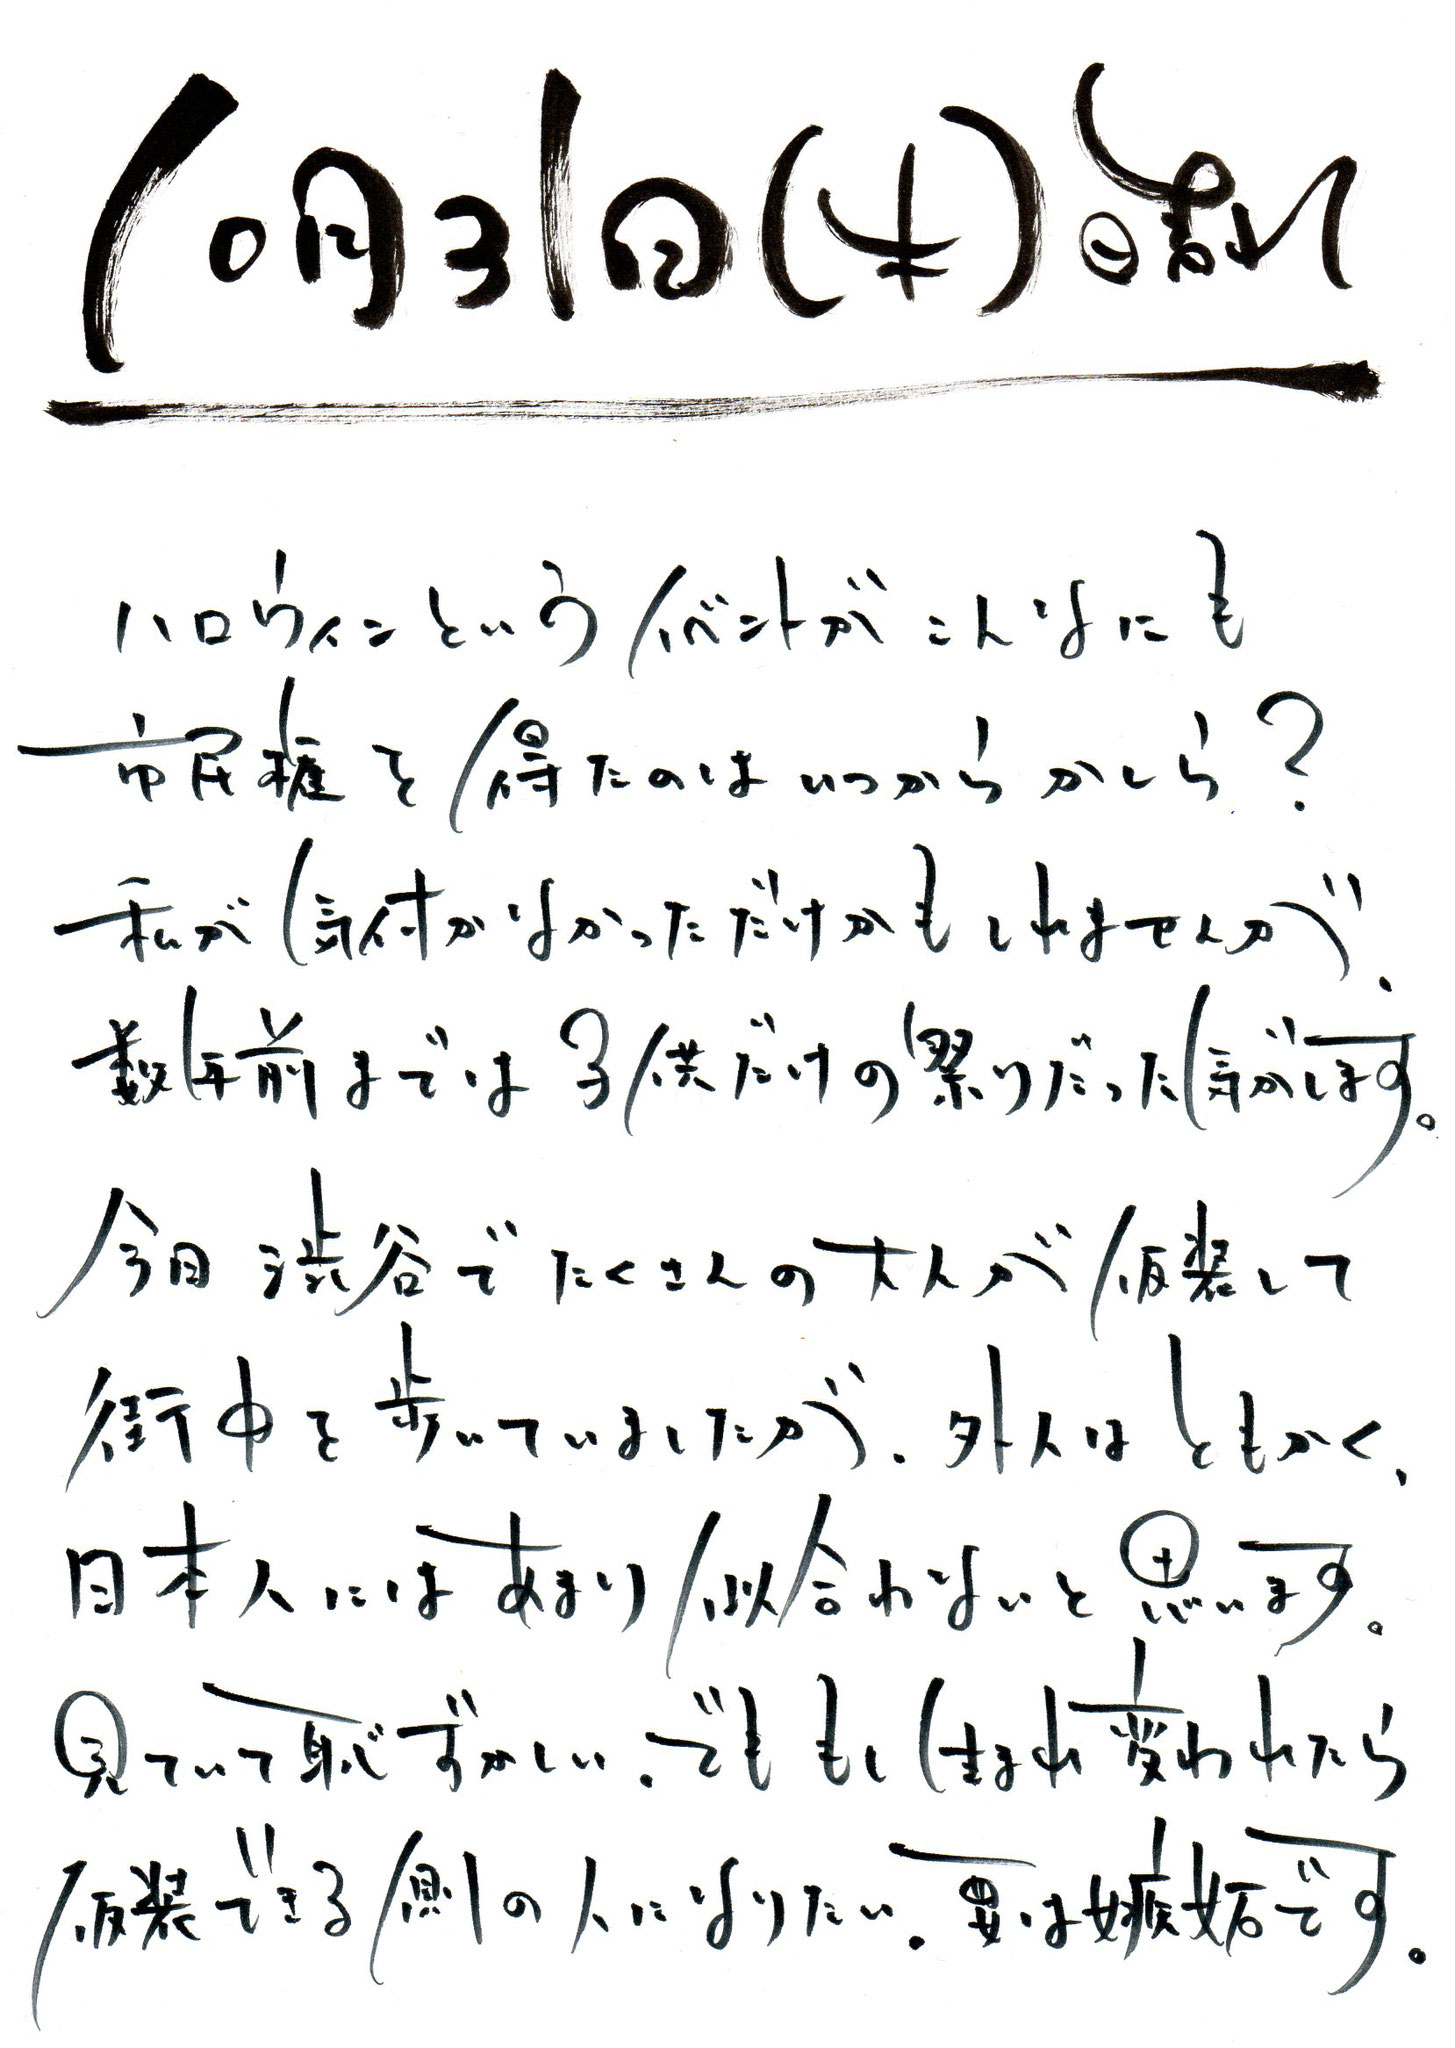 10月31日(木)晴れ
ハロウィンというイベントがこんなにも
市民権を得たのはいつからかしら?
私が気付かなかっただけかもしれませんが、
数年前までは子供だけの祭りだった気がします。
今日渋谷でたくさんの大人が仮装して
街中を歩いていましたが、外人はともかく、
日本人にはあまり似合わないと思います。
見ていて恥ずかしい。でももし生まれ変われたら
仮装できる側の人になりたい。要は嫉妬です。